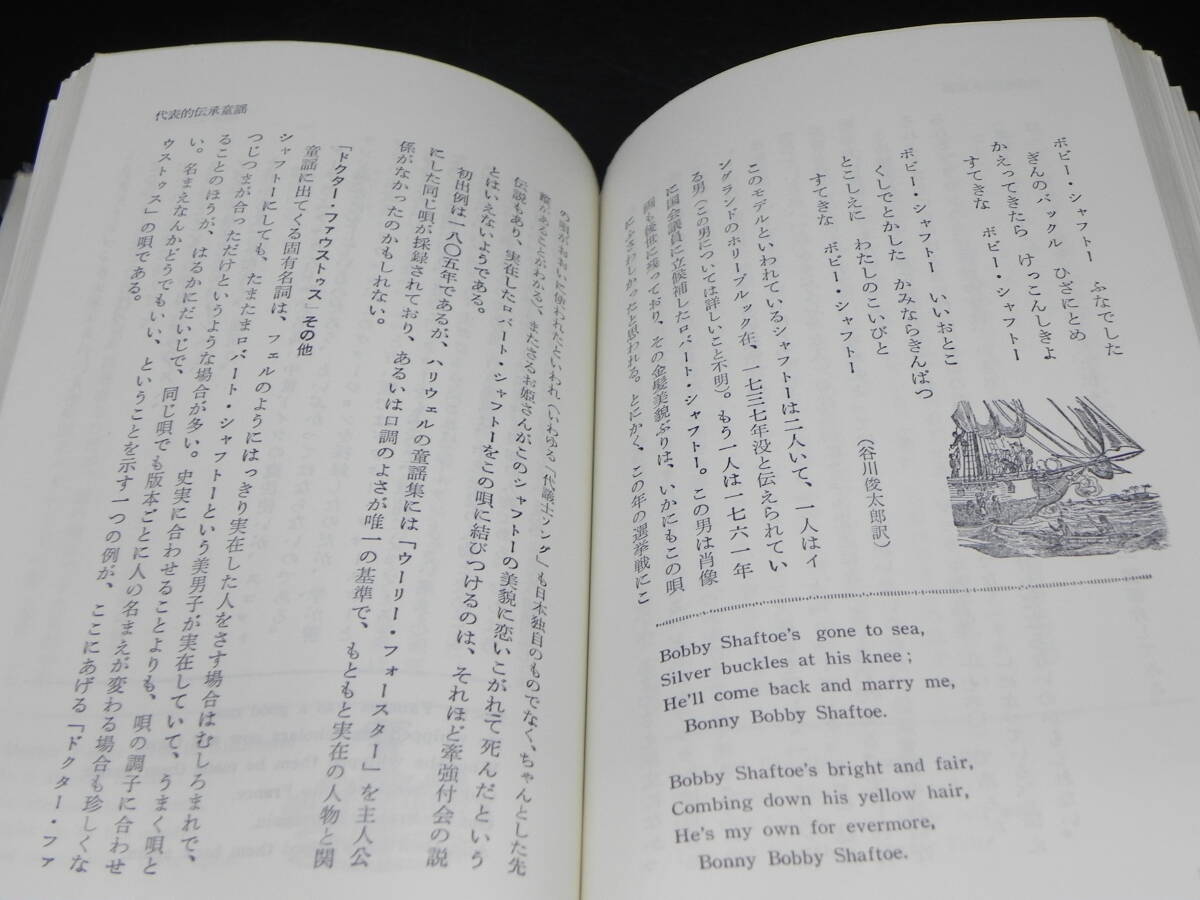 ボビー・シャフトー　ふなでした
ぎんのバックル　ひざにとめ
かえってきたら　けっこんしきよ
すてきな　ボビー・シャフトー
ボビー・シャフトー　いいおとこ
くしでとかした　かみならきんぱつ
とこしえに　わたしのこいびと
すてきな　ボビー・シャフトー
（谷川俊太郎訳）
このモデルといわれているシャフトーは二人いて、一人はイ
ングランドのホリーブルック在、一七三七年没と伝えられてい
る男（この男については詳しいこと不明）。もう一人は一七六一年
に国会議員に立候補したロバート・シャフトー。この男は肖像
画も後世に残っており、その金髪美貌ぶりは、いかにもこの唄
にふさわしかったと思われる。とにかく、この年の選挙戦にこ
Bobby Shaftoe's gone to sea,
Silver buckles at his knee;
He'll come back and marry me,
Bonny Bobby Shaftoe.
Bobby Shaftoe's bright and fair,
Combing down his yellow hair,
He's my own for evermore,
Bonny Bobby Shaftoe.
代表的伝承童謡
の唄がおおいに使われたといわれ（いわゆる「代議士ソング」も日本独自のものでなく、ちゃんとした先
蹤があることがわかる）、またさるお姫さんがこのシャフトーの美貌に恋いこがれて死んだという
伝説もあり、実在したロバート・シャフトーをこの唄に結びつけるのは、それほど牽強付会の説
とはいえないようである。
初出例は一八〇五年であるが、ハリウェルの童謡集には「ウーリー・フォースター」を主人公
にした同じ唄が採録されており、あるいは口調のよさが唯一の基準で、もともと実在の人物と関
係がなかったのかもしれない。
「ドクター・ファウストゥス」その他
童謡に出てくる固有名詞は、フェルのようにはっきり実在した人をさす場合はむしろまれで、
シャフトーにしても、たまたまロバート・シャフトーという美男子が実在していて、うまく唄と
つじつまが合っただけというような場合が多い。史実に合わせることよりも、唄の調子に合わせ
ることのほうが、はるかにだいじで、同じ唄でも版本ごとに人の名まえが変わる場合も珍しくな
い。名まえなんかどうでもいい、ということを示す一つの例が、ここにあげる「ドクター・ファ
ウストゥス」の唄である。